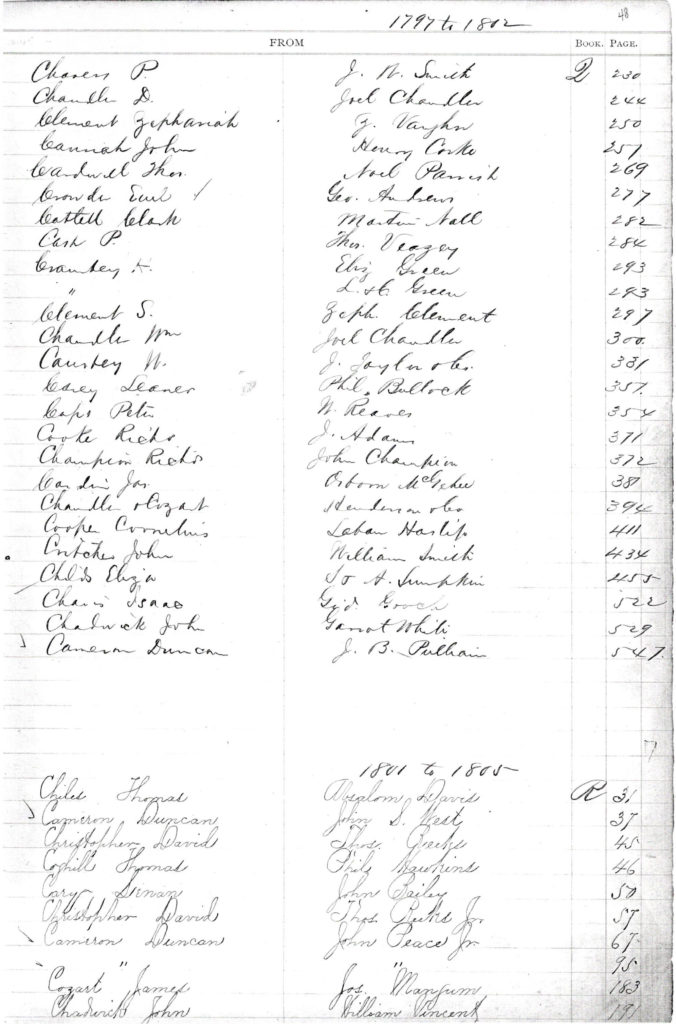 48
1797 to 1802
FROM BOOK. PAGE.
Chavers P. J. W. Smith Q 230
Chandler D. Joel Chandler 244
Clement Zephaniah Z. Vaughn 250
Cannah John Henry Cooke 257
Cardwell Thos. Noel Parrish 269
Crowder Geo. Andrews 277
Cattell Clark Martin Nall 282
Cash P. Thos. Veazey 284
H. Eliz Green 293
" Green 293
Clement S. Zeph. Clement 297
Chandler Wm Joel Chandler 300
Causbey W. J. Taylor & Co. 331
Phil. Bullock 357
Caps Peter W. Reaves 354
Cooke Richd J. Adams 371
Champion Richd John Champion 372
Jas Osborn McGehee 381
Chandler & Cozart Henderson & Co 394
Cooper Cornelius Laban Haslip 411
Critcher John William Smith 434
Childs Eliza Lumpkin 455
Chavis Isaac Gid. Gooch 522
Chadwick John Garrot White 529
Cameron Duncan J. B. Pulliam 547
1801 to 1805
Chiles Thomas Absalom Davis R 31
Cameron Duncan John S. West 37
Christopher David Thos. 45
Coghill Thomas Phil. Hawkins 46
Cary John Bailey 50
Christopher David Thos. Jr. 57
Cameron Duncan John Peace Jr 67
" " 95
Cozart James Jos. Mangum 183
Chadwick John William Vincent 191